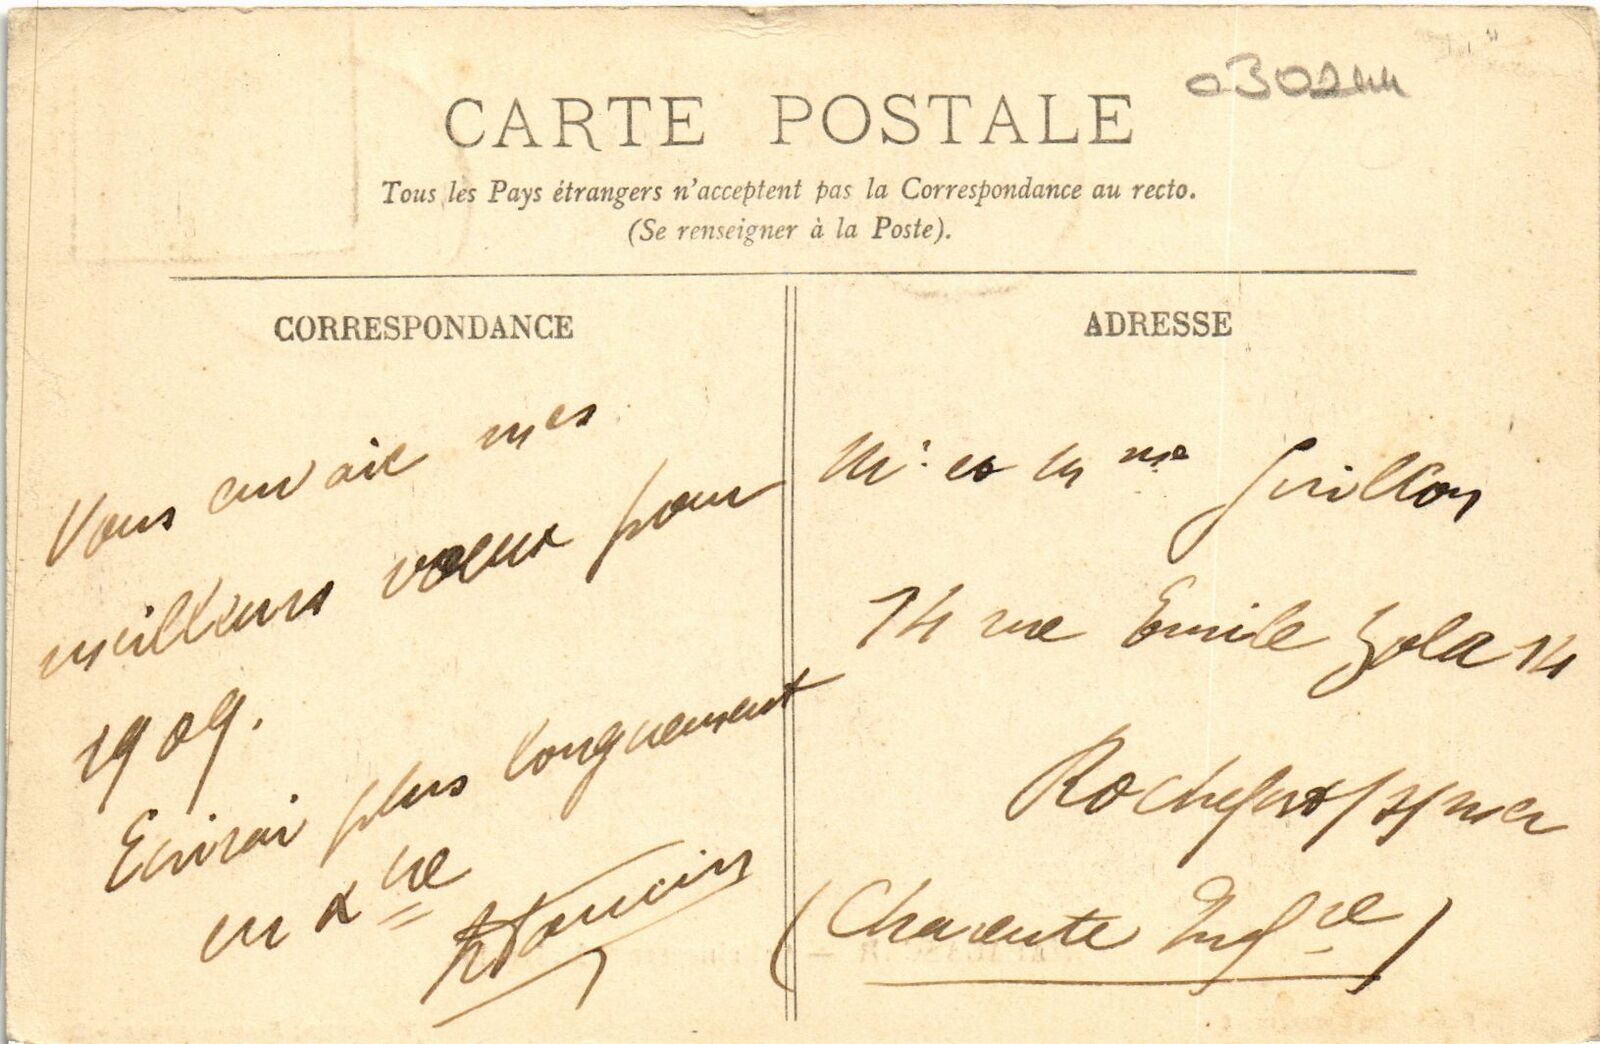 o30244
CARTE POSTALE
Tous les Pays étrangers n'acceptent pas la Correspondance au recto.
(Se renseigner à la Poste).
CORRESPONDANCE
Vous envoie mes
meilleurs vœux pour
1909.
Ecrirai plus longuement
en Xbre
ADRESSE
Mr et Mme Guillon
14 rue Emile Zola 14
Rochefort s/mer
(Charente Infre)